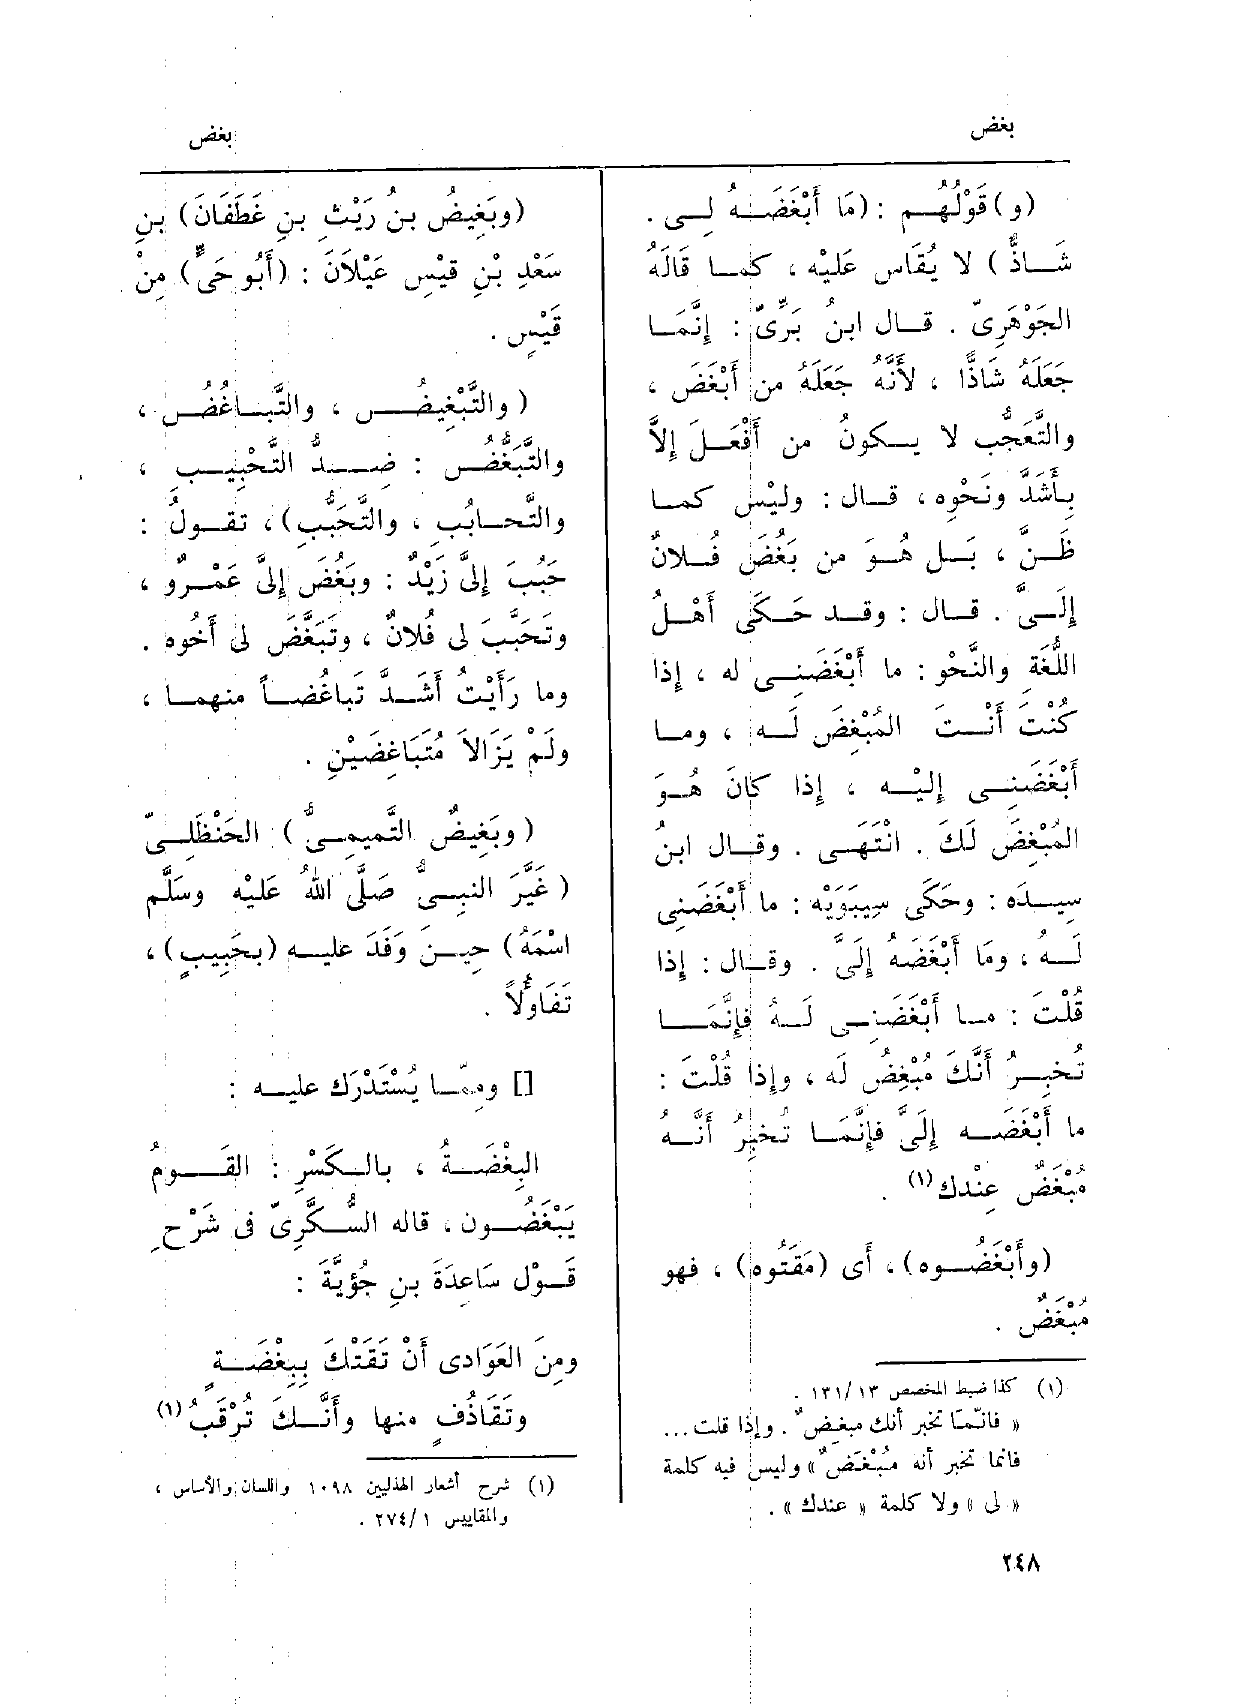 بغض
بغض
(و) قَوْلُهُم : (مَا أَبْغَضَهُ لِى .
شَاذٌّ) لا يُقَاس عَلَيْه ، كما قَالَهُ
الجَوْهَرِىّ . قال ابنُ بَرِّىّ : إِنَّمَا
جَعَلَهُ شَاذًّا ، لأَنَّهُ جَعَلَهُ من أَبْغَضَ ،
والتَّعَجُّب لا يكونُ من أَفْعَلَ إِلاَّ
بأَشَدَّ ونَحْوِه ، قال : وليْس كما
ظَنَّ ، بَل هُوَ من بَغُضَ فُلانٌ
إِلَىَّ . قال : وقد حَكَى أَهْلُ
اللُّغَةِ والنَّحْوِ : ما أَبْغَضَنِى له ، إِذا
كُنْتَ أَنْتَ المُبْغِضَ لَه ، وما
أَبْغَضَنِى إِلَيْه ، إِذا كانَ هُوَ
المُبْغِضَ لَكَ . انْتَهَى . وقال ابنُ
سِيدَه : وحَكَى سِيبَوَيْه : ما أَبْغَضَنِى
لَهُ ، ومَا أَبْغَضَهُ إِلَىَّ . وقال : إِذا
قُلْتَ : ما أَبْغَضَنِى لَهُ فإِنَّمَا
تُخْبِرُ أَنَّكَ مُبْغِضٌ لَه ، وإِذا قُلْتَ :
ما أَبْغَضَه إِلَىَّ فإِنَّمَا تُخْبِرُ أَنَّهُ
مُبْغَضٌ عِنْدك(١) .
(وأَبْغَضُوه) ، أَى (مَقَتُوه) ، فهو
مُبْغَضٌ .
(١) كذا ضبط المخصص ١٣/ ١٣١ .
« فانّمَا تخبر أنك مبغِضٌ . وإذا قلت...
فانما تخبر أنه مُبْغَضٌ » وليس فيه كلمة
« لى » ولا كلمة « عندك » .
(وبَغِيضُ بنُ رَيْثِ بنِ غَطَفَانَ) بنِ
سَعْدِ بْنِ قَيْسِ عَيْلاَنَ : (أَبُو حَىٍّ) مِنْ
قَيْسٍ .
( والتَّبْغِيضُ ، والتَّبَاغُضُ ،
والتَّبَغُّضُ : ضِدُّ التَّحْبِيبِ ،
والتَّحابُبِ ، والتَّحَبُّبِ) ، تقولُ :
حُبِّبَ إِلىَّ زَيْدٌ : وبُغِّضَ إِلىَّ عَمْرٌو ،
وتَحَبَّبَ لى فُلانٌ ، وتَبَغَّضَ لى أَخُوه .
وما رَأَيْتُ أَشَدَّ تَباغُضاً منهما ،
ولَمْ يَزَالاَ مُتَبَاغِضَيْنِ .
( وبَغِيضٌ التَّمِيمِىُّ ) الحَنْظَلِىّ
( غَيَّرَ النبِىُّ صَلَّى اللهُ عَلَيْه وسَلَّم
اسْمَهُ) حِينَ وَفَدَ عليه (بحَبِيبٍ) ،
تَفَاؤُلاً .
[] ومِمّا يُسْتَدْرَك عليه :
البِغْضَةُ ، بالكَسْرِ : القَوْمُ
يُبْغَضُون ، قاله السُّكَّرِىّ فى شَرْحِ
قَوْل سَاعِدَةَ بنِ جُؤيَّةَ :
ومِنَ العَوَادِى أَنْ تَقَتْكَ بِبِغْضَةٍ
وتَقَاذُفٍ منها وأَنَّكَ تُرْقَبُ(١)
(١) شرح أشعار الهذليين ١٠٩٨ واللسان والأساس ،
والمقاييس ١ /٢٧٤ .
٢٤٨